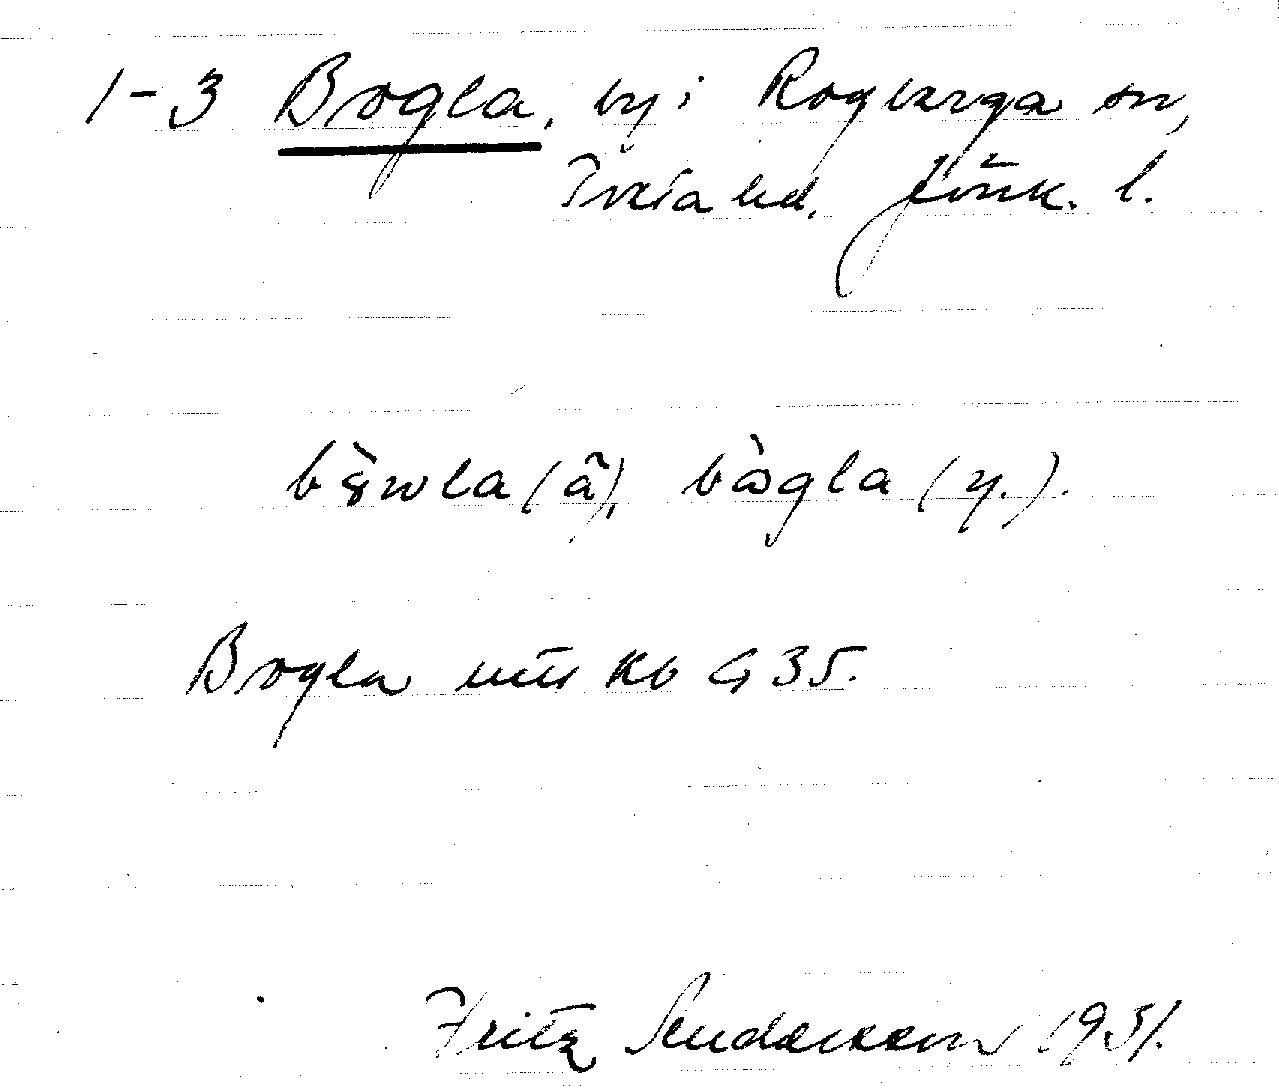 1-3 Bogla, by i Rogberga sn,
Tveta hd, Jönk. l.
bọ̀wla (ä), bògla (y.).
Bogla Kb G 35.
Fritz Andersson 1931.